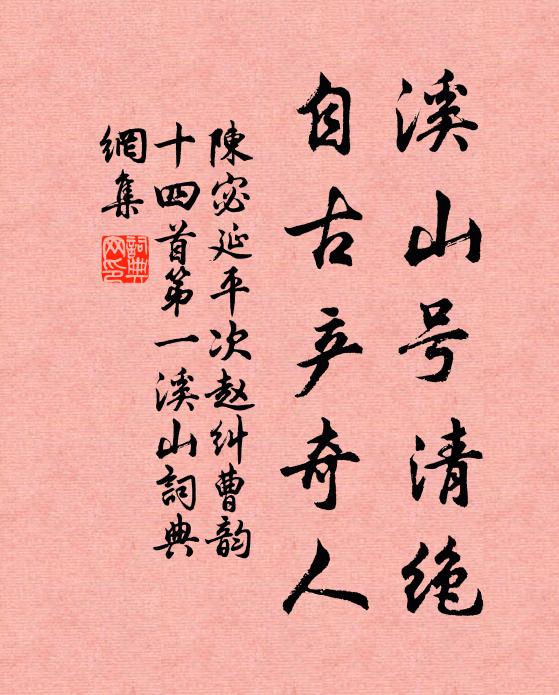 溪山号清绝
自古产奇人
陳宓延平次赵纠曹韵
十四首第一溪山詞典
網集
詞典
网印